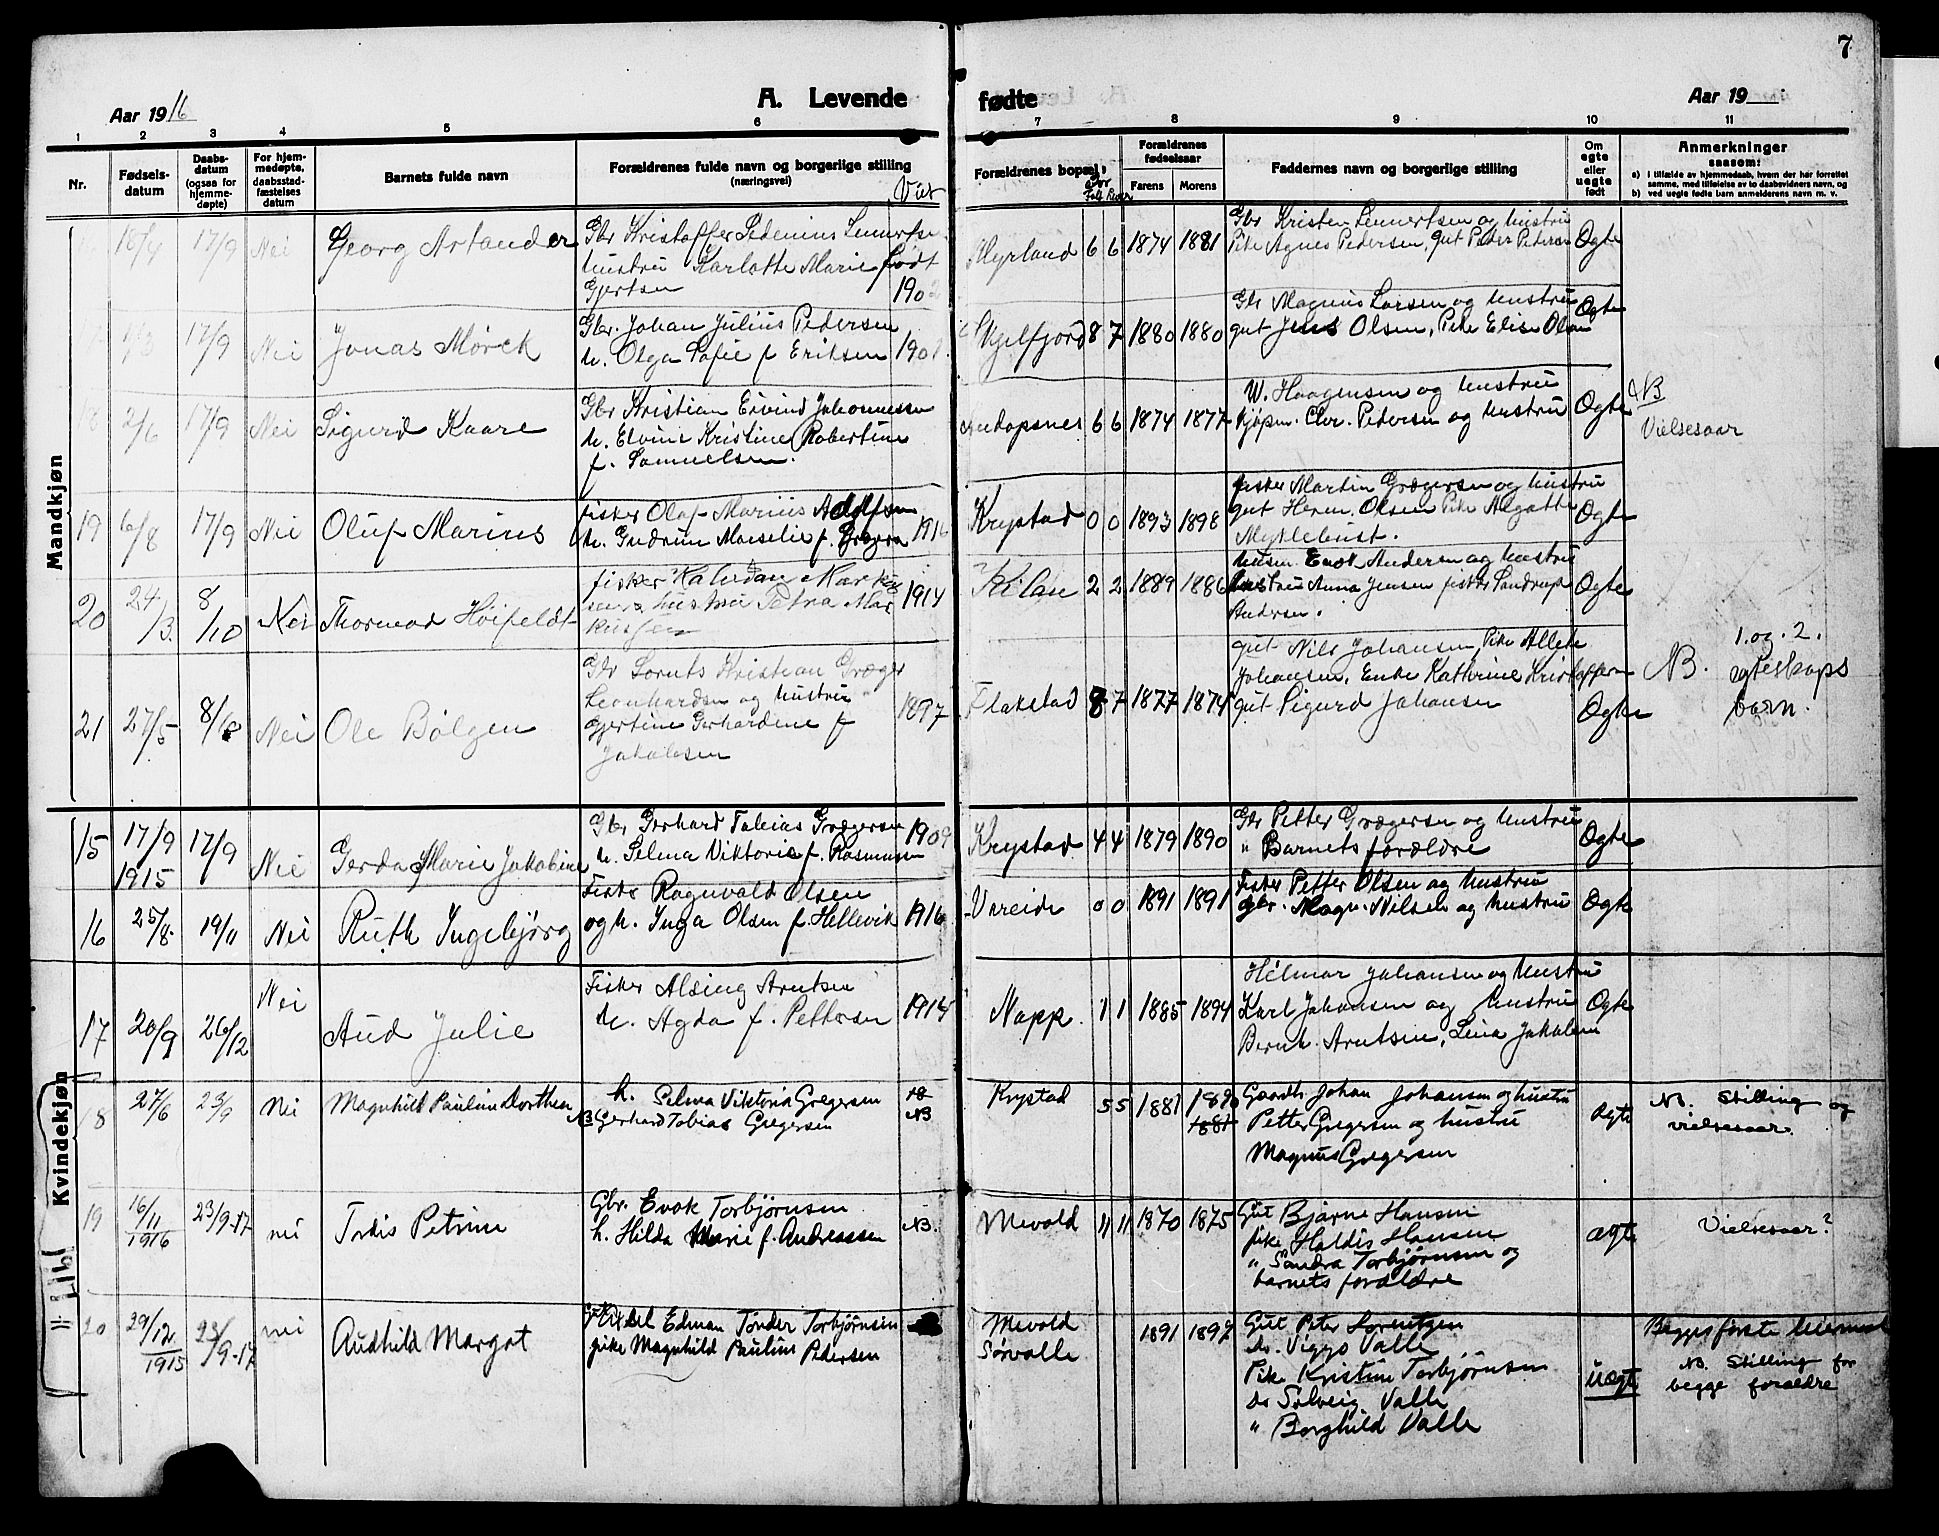 7
Aar 1916
A. Levende
fødte
Aar 19
1 2 3 4 5 6 7 8 9 10 11
Nr.
Fødsels-
datum
Daabs-
datum
(ogsaa for
hjemme-
døpte)
For hjem-
medøpte,
daabsstad-
fæstelses
datum
Barnets fulde navn
Forældrenes fulde navn og borgerlige stilling
(næringsvei)
Viet
Forældrenes bopæl
Forældrenes
fødselsaar
Farens Morens
Faddernes navn og borgerlige stilling
Om
egte
eller
uegte
født
Anmerkninger
saasom:
a) i tilfælde av hjemmedaab, hvem der har forrettet
samme, med tilføielse av to daabsvidners navn, og
b) ved uegte fødte barn anmelderens navn m. v.
Mandkjøn
18/4 17/9 Nei Georg Artander
Gbr Kristoffer Pedenius Lennertsen
hustru Karlotte Marie født
Gjertsen 190
Myrland 6 6 1874 1881
Gbr Krister Lennertsen og hustru
Pike Agnes Pedersen, gut Peder Pedersen
Egte
17/9 Nei Jonas Mörck
Gbr. Johan Julius Pedersen
h. Olga Sofie f Eriksen 190
Skjelfjord 8 7 1880 1880
Gbr Magnus Larsen og hustru
gut Jens Olsen, Pike Elise Olsen
Egte
18 2/6 17/9 Nei Sigurd Kaare
Gbr Kristian Eivind Johannessen
h. Elvine Kristine Robertine
f. Samuelsen.
Andopsnes 6 6 1874 1877
W. Haagensen og hustru
Kjøpm. Chr. Pedersen og hustru
Egte
NB
Vielsesaar
19 6/8 17/9 Nei Oluf Marius
fisker Olaf Marius Adolfsen
h. Gudrun Marselie f. Grægers 1916
Krystad 0 0 1893 1898
fisker Martin Grægersen og hustru
gut Herm. Olsen Pike Algatte
Myklebust.
Egte
20 24/3 8/10 Nei Thormod Höifeldt
fisker Halvdan Mark
hustru Petra Mar
kussen 1914
Kilan 2 2 1889 1886
Enok Andersen og hustru
hustru Anna Jensen fisker
Andersen.
Egte
21 27/5 8/10 Nei Ole Bölgen
Gbr Sorents Kristian Græger
Leonhardsen og hustru
Gjertine Gerhardine f
Jakobsen 1897
Flakstad 8 7 1877 1874
gut Nils Johansen, Pike Allete
Johansen, Enke Kathrine Kristoffersen
gut Sigurd Johansen
Egte
NB. 1. og 2.
egteskaps
barn.
Kvindekjøn
15 17/9 1915 17/9 Nei Gerda Marie Jakobine
Gbr Gerhard Tobias Grægersen
h. Selma Viktoria f. Rasmussen 1909
Krystad 4 4 1879 1890
Gbr Petter Grægersen og hustru
" Barnets forældre
Egte
16 25/8 19/11 Nei Ruth Ingebjørg
Fisker Ragnvald Olsen
og h. Inga Olsen f. Hellevik 1916
Vareide 0 0 1891 1891
Fisker Petter Olsen og hustru
gbr. Magn. Nilsen og hustru
Egte
17 20/9 26/12 Nei Aud Julie
Fisker Alsing Arntsen
h. Agda f. Pettersen 1914
Napp 1 1 1885 1894
Hilmar Johansen og hustru
Karl Johansen og hustru
Bernh. Arntsen, Lina Jakobsen
Egte
18 27/6 23/9 Nei Magnhild Pauline Dorthea
h. Selma Viktoria Gregersen
NB Gerhard Tobias Gregersen
NB
Krystad 5 5 1881 1890
1881
Gaardb Johan Johansen og hustru
Petter Gregersen og hustru
Magnus Gregersen
ægte
NB. Stilling og
vielsesaar.
19 16/11 1916 23/9-17 nei Tordis Petrine
Gbr. Enok Torbjørnsen
h. Hilda Marie f. Andreassen
NB.
Mevold 11 11 1870 1875
Gut Bjarne Hansen
pike Haldis Hansen
" Sandra Torbjørnsen og
barnets forældre
ægte
Vielsesaar?
20 29/12 1915 23/9-17 nei Audhild Margot
Edman Tönder Torbjørnsen
pike Magnhild Pauline Pedersen
Mevold
Sørvalle
1891 1897
Gut Peter Lorentzen
do. Viggo Valle
Pike Kristine Torbjørnsen
do Solveig Valle
" Borghild Valle
uægte
Begges første
NB. Stilling for
begge forældre